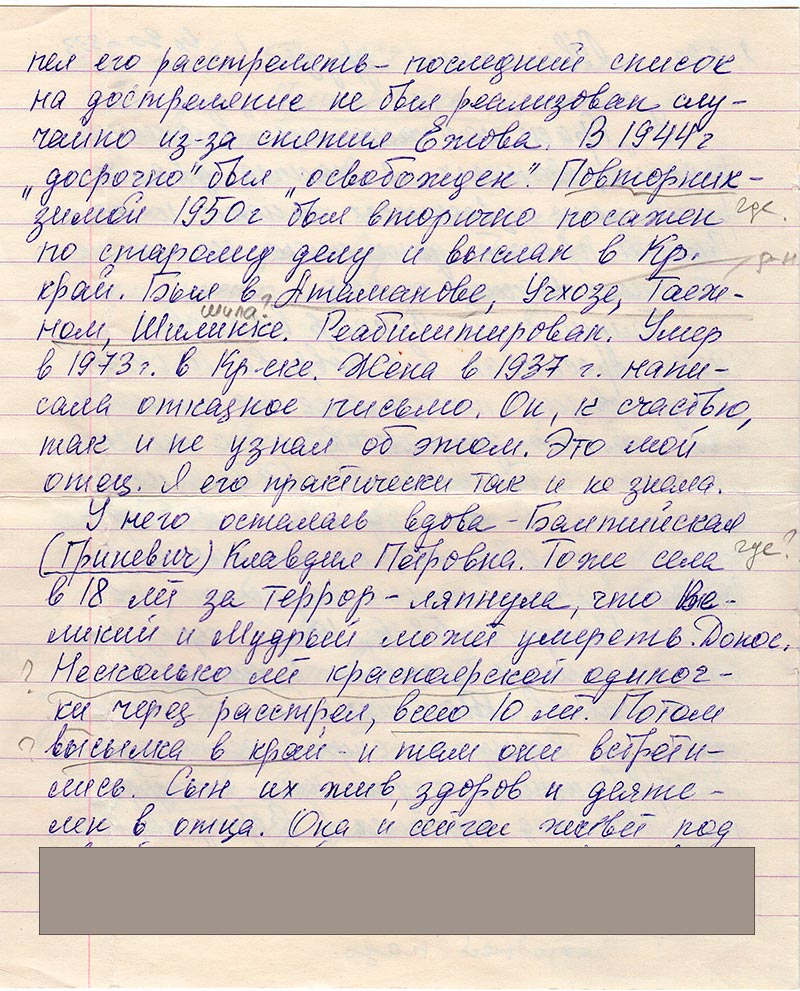 пел его расстрелять – последний список
на достреляние не был реализован слу-
чайно из-за снятия Ежова. В 1944 г
„досрочно" был „освобожден". Повторник –
зимой 1950 г был вторично посажен где.
по старому делу и выслан в Кр.
край. Был в Атаманове, Учхозе, Таеж-
шила?
ном, Шилинке. Реабилитирован. Умер
в 1973 г. в Кр-ске. Жена в 1937 г. напи-
сала отказное письмо. Он, к счастью,
так и не узнал об этом. Это мой
отец. Я его практически так и не знала.
У него осталась вдова – Балтийская
(Гриневич) Клавдия Петровна. Тоже села где?
в 18 лет за террор – ляпнула, что Ве-
ликий и Мудрый может умереть. Донос.
? Несколько лет красноярской одиноч-
ки через расстрел, всего 10 лет. Потом
? высылка в край – и там они встрети-
лись. Сын их жив, здоров и деяте-
лен в отца. Она и сейчас живет под